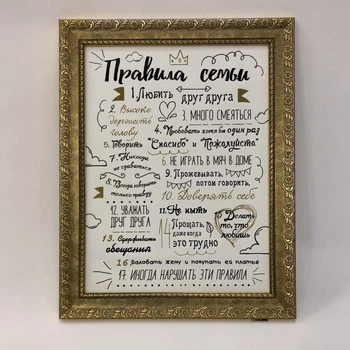 Правила семьи
1. Любить друг друга
2. Высоко держать голову
3. много смеяться
4. Пробовать хотя бы один раз
5. Говорить "Спасибо" и "Пожалуйста"
6. НЕ ИГРАТЬ В МЯЧ В ДОМЕ
7. Никогда не сдаваться
8. Всегда говорить только правду
9. Прожевывать, потом говорить,
10. Доверять себе
11. Не ныть
12. УВАЖАТЬ ДРУГ ДРУГА
13. Сдерживать обещания
14 Прощать, даже когда это трудно
Делать то, что любишь
16 Баловать жену и покупать ей платья
17. ИНОГДА НАРУШАТЬ ЭТИ ПРАВИЛА